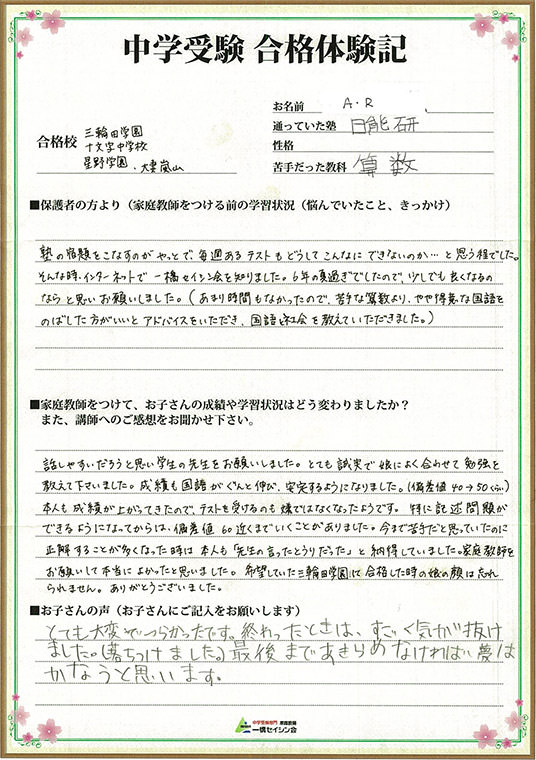 中学受験 合格体験記
お名前 A・R
通っていた塾 日能研
性格
苦手だった教科 算数
合格校 三輪田学園
十文字中学校
星野学園、大妻嵐山
■保護者の方より（家庭教師をつける前の学習状況（悩んでいたこと、きっかけ）
塾の宿題をこなすのがやっとで、毎週あるテストもどうしてこんなにできないのか…と思う程でした。
そんな時、インターネットで一橋セイシン会を知りました。6年の夏過ぎでしたので、少しでも良くなるの
ならと思いお願いしました。（あまり時間もなかったので、苦手な算数より、やや得意な国語を
のばした方がいいとアドバイスをいただき、国語と社会を教えていただきました。）
■家庭教師をつけて、お子さんの成績や学習状況はどう変わりましたか？
また、講師へのご感想をお聞かせ下さい。
話しやすいだろうと思い学生の先生をお願いしました。とても誠実で娘によく合わせて勉強を
教えて下さいました。成績も国語がぐんと伸び、安定するようになりました。（偏差値40→50くらい）
本人も成績が上がってきたので、テストを受けるのも嫌ではなくなったようです。特に記述問題が
できるようになってからは、偏差値60近くまでいくことがありました。今まで苦手だと思っていたのに
正解することが多くなった時は本人も「先生の言ったとうりだった」と納得していました。家庭教師を
お願いして本当によかったと思いました。希望していた三輪田学園に合格した時の娘の顔は忘れ
られません。ありがとうございました。
■お子さんの声（お子さんにご記入をお願いします）
とても大変でつらかったです。終わったときは、すごく気が抜け
ました。（落ちつけました。）最後まであきらめなければ夢は
かなうと思います。
中学受験専門 家庭教師
一橋セイシン会